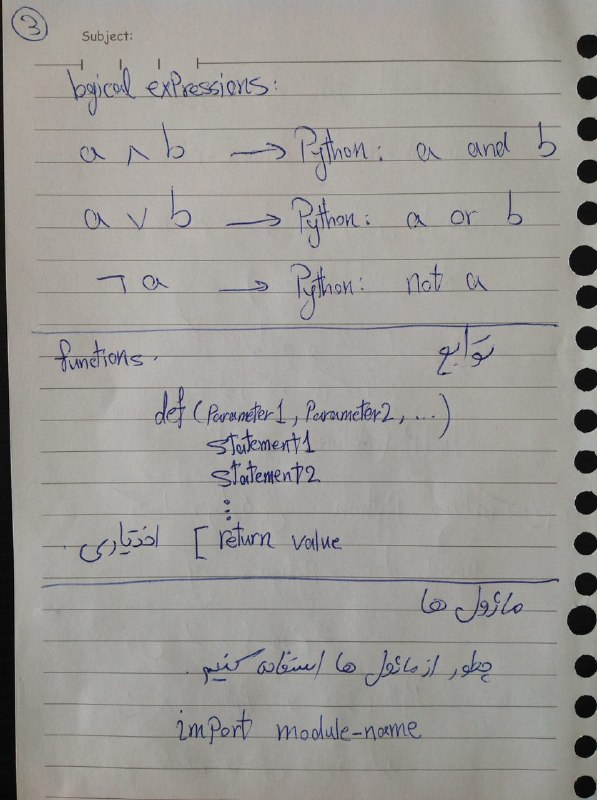 3
Subject:
logical expressions:
a ∧ b → Python: a and b
a ∨ b → Python: a or b
¬ a → Python: not a
functions. توابع
def (parameter1, parameter2, ...)
statement1
statement2
⋮
اختیاری [ return value
ماژول ها
چطور از ماژول ها استفاده کنیم.
import module-name